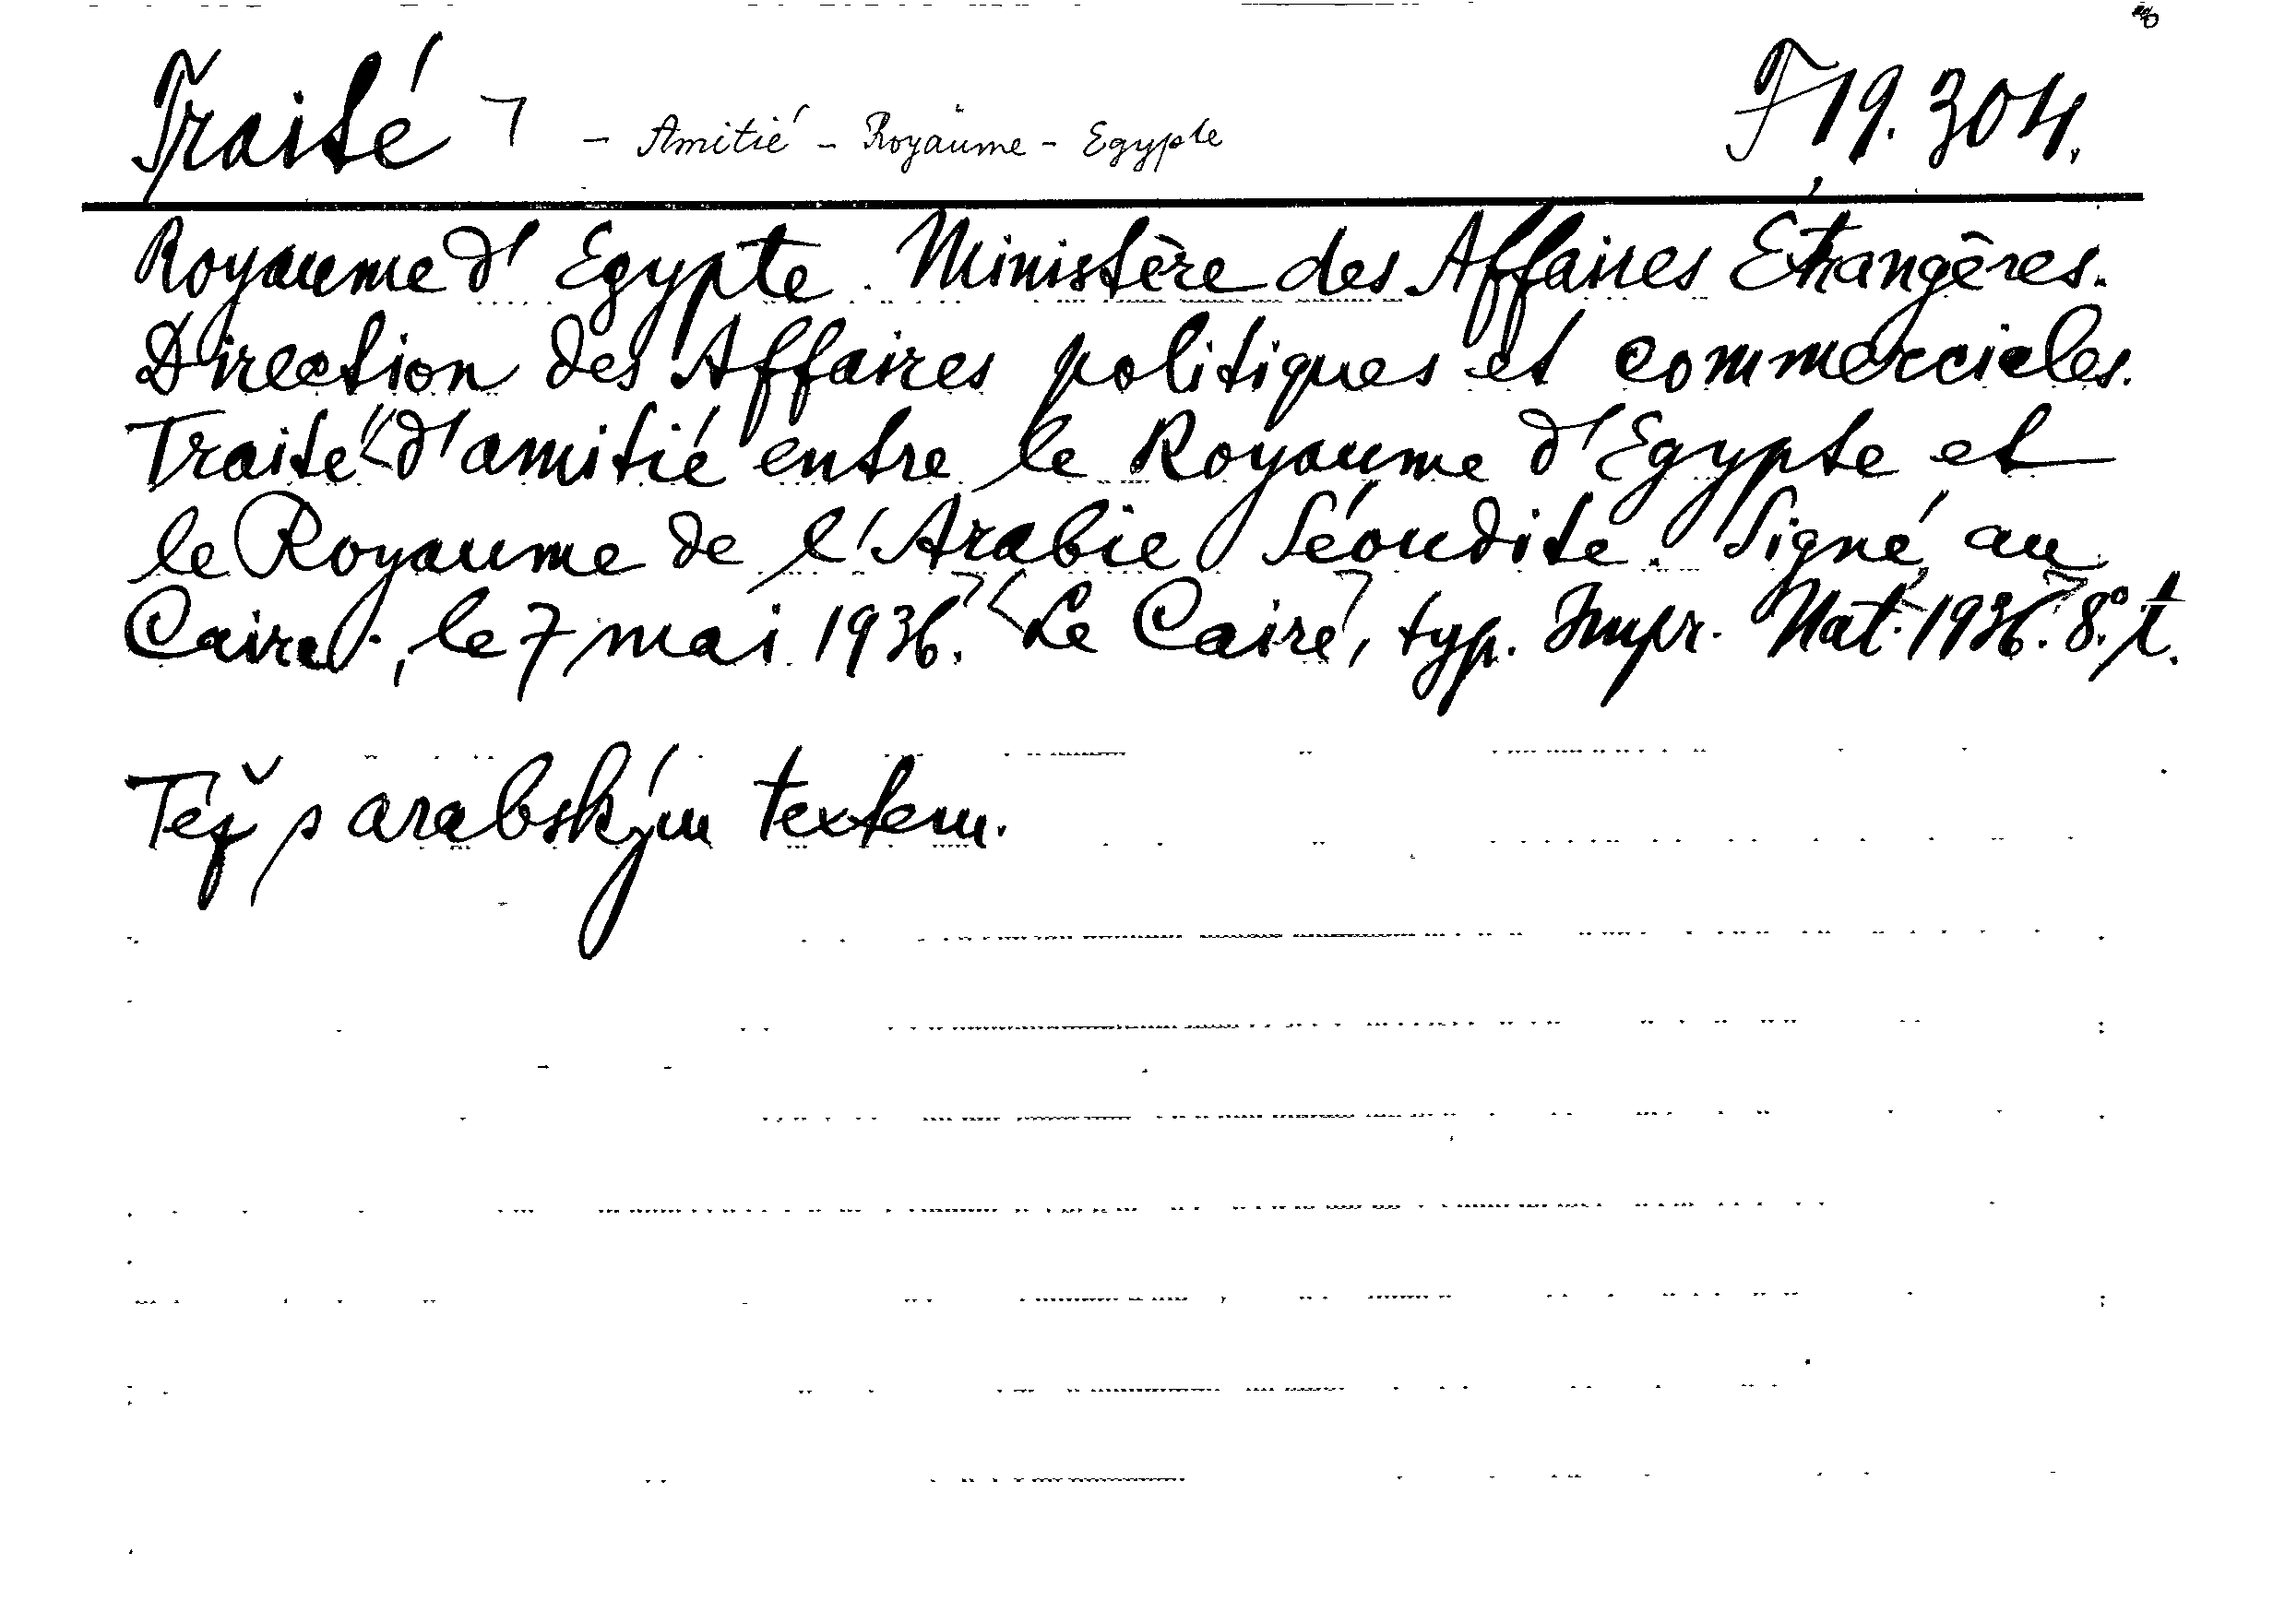 Traité ⌝ - Amitié - Royaume - Egypte F 19.304.
Royaume d'Egypte. Ministère des Affaires Etrangères.
Direction des Affaires politiques et commerciales.
Traité d'amitié entre le Royaume d'Egypte et
le Royaume de l'Arabie Séoudite. Signé au
Caire, le 7 mai 1936. Le Caire, typ. Impr. Nat. 1936. 8°.
Též s arabským textem.